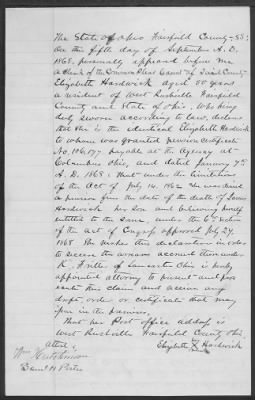 The State of Ohio Fairfield County - SS:
On the fifth day of September A.D.
1868, personally appeared before me
a Clerk of the Common Pleas Court of said County
Elizabeth Hardwick aged 50 years
a resident of West Rushville Fairfield
County and State of Ohio, who being
duly sworn according to law, declares
that she is the identical Elizabeth Hardwick
to whom was granted pension certificate
No. 106,197 payable at the Agency at
Columbus Ohio, and dated January 7th
A.D. 1868: that under the limitations
of the Act of July 14, 1862 she was allowed
a pension from the date of the death of Lewis
Hardwick her son and believing herself
entitled to the same under the 6th section
of the act of Congress approved July 27,
1868 she makes this declaration in order
to secure the arrears accruing thereunder
K. Fritter of Lancaster Ohio is hereby
appointed attorney to present and prosecute
this claim and receive any
draft, order or certificate that may
issue in the premises.
That her Post office address is
West Rushville Fairfield County Ohio,
attest: Elizabeth X Hardwick
Wm Hutchinson mark